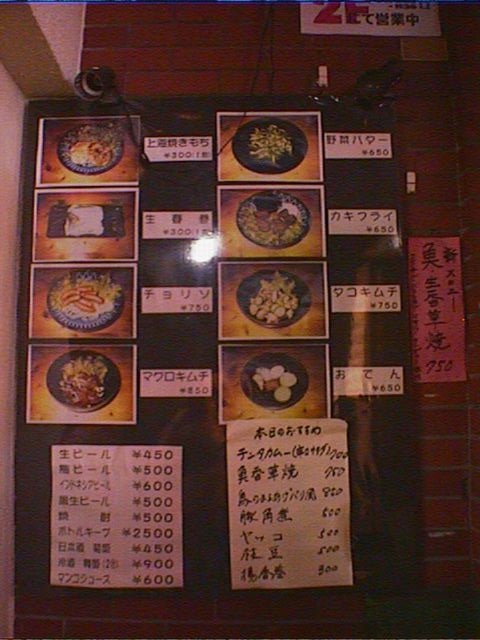 2F
にて営業中
上海焼きもち
¥300(1枚)
野菜バター
¥650
生春巻
¥300(1本)
カキフライ
¥650
チョリソ
¥750
タコキムチ
¥750
マグロキムチ
¥850
おでん
¥650
新メニュー
魚生香草焼
750
生ビール ¥450
瓶ビール ¥500
インドネシアビール ¥600
黒生ビール ¥500
焼酎 ¥500
ボトルキープ ¥2500
日本酒 菊姫 ¥450
冷酒 ¥900
マンゴジュース ¥600
本日のおすすめ
700
魚香草焼 750
850
豚角煮 500
ヤッコ 500
枝豆 500
揚春巻 300